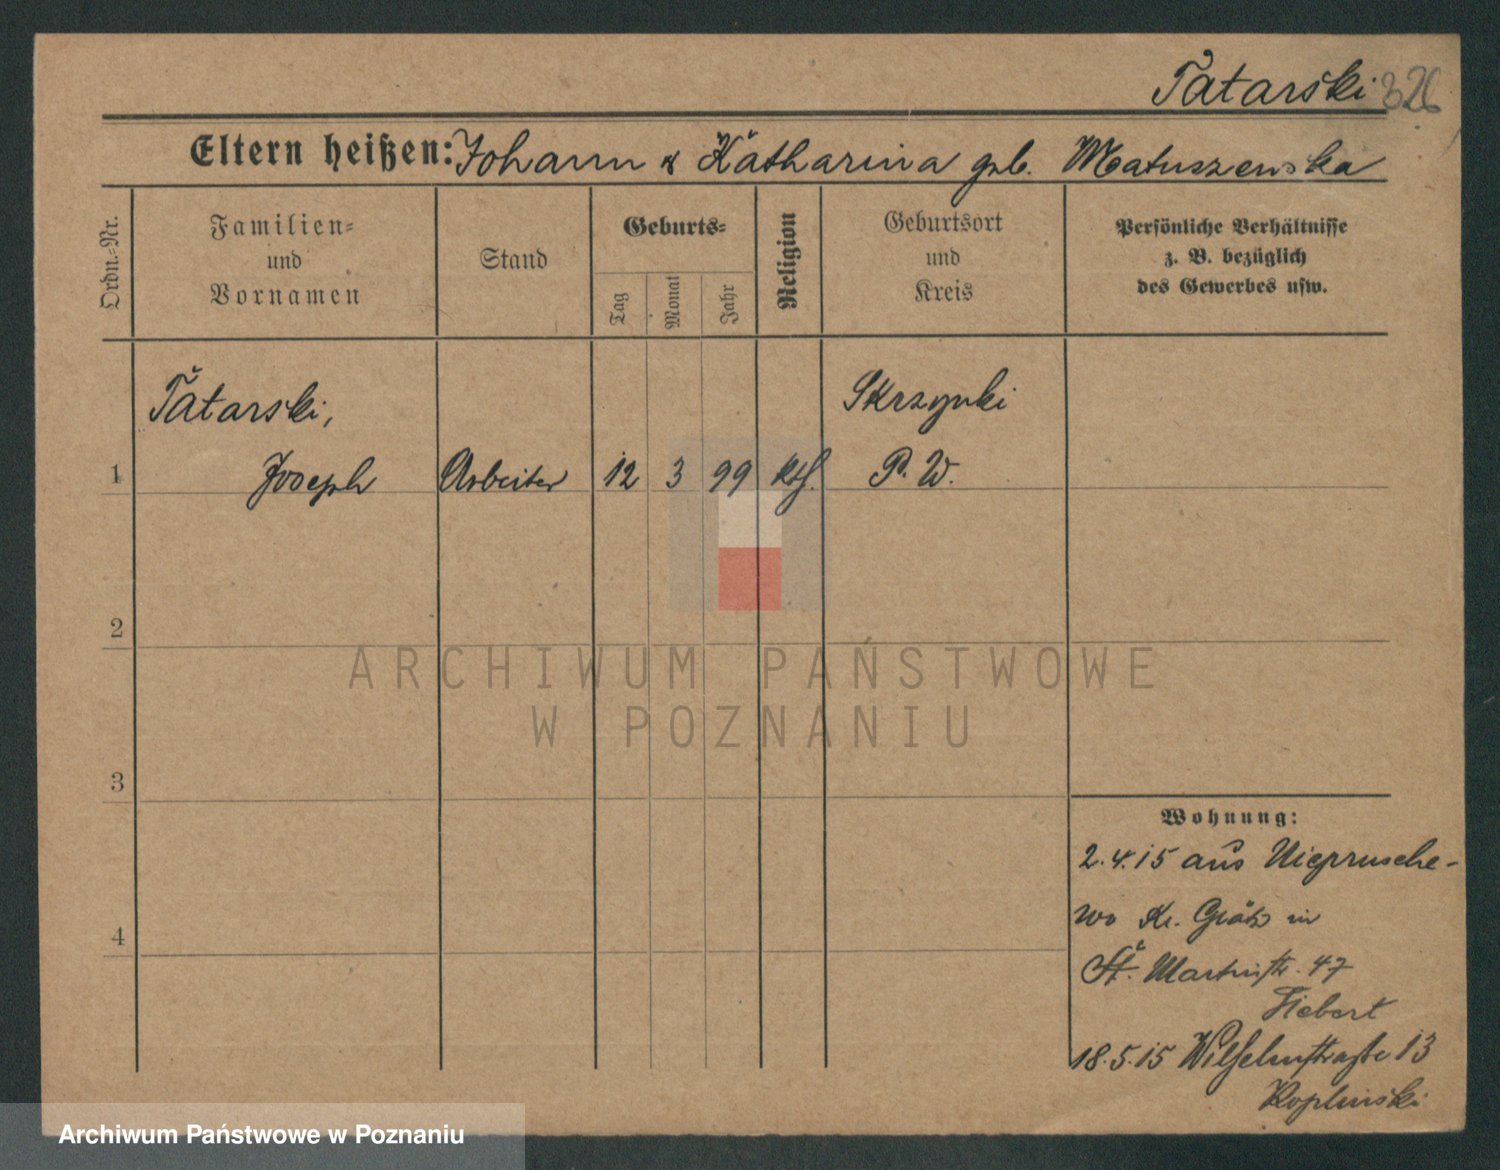 Tatarski 326
Eltern heißen: Johann & Katharina geb. Matuszewska
Ordn.-Nr.
Familien-
und
Vornamen
Stand
Geburts-
Tag
Monat
Jahr
Religion
Geburtsort
und
Kreis
Persönliche Verhältnisse
z. B. bezüglich
des Gewerbes usw.
Tatarski,
Skrzynki
1 Joseph Arbeiter 12 3 99 kth. P. W.
2
ARCHIWUM PAŃSTWOWE
W POZNANIU
3
Wohnung:
2.4.15 aus Niegrusche-
wo Kr. Grätz in
4
St. Martinstr. 47
Fiebert
18.5.15 Wilhelmstraße 13
Koplinski
Archiwum Państwowe w Poznaniu